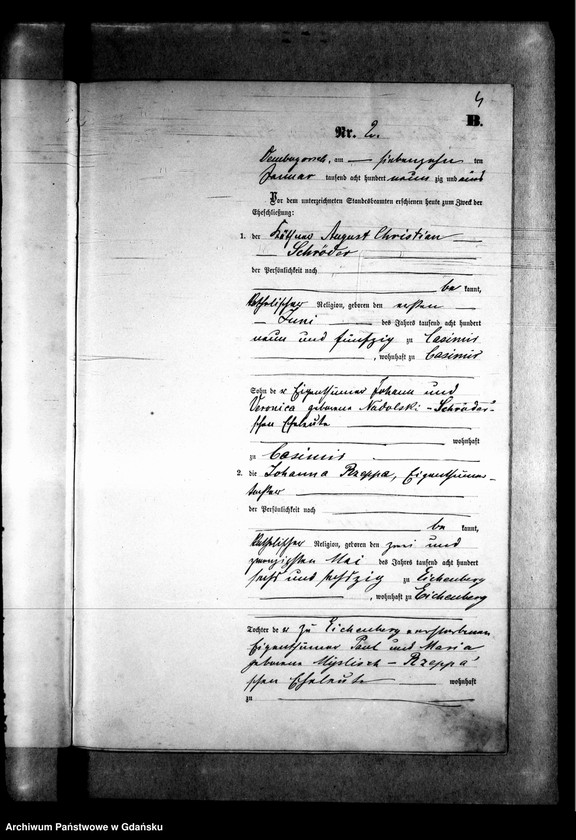 4
B.
Nr. 2.
am siebenzehn ten
Januar tausend acht hundert neun zig und eins
Vor dem unterzeichneten Standesbeamten erschienen heute zum Zweck der
Eheschließung:
1. der Käthner August Christian
Schröder
der Persönlichkeit nach
be kannt,
katholischer Religion, geboren den ersten
Juni des Jahres tausend acht hundert
neun und fünfzig zu Casimir
, wohnhaft zu Casimir
Sohn de r Eigenthümer Johann und
Veronica geborene Nadolski-Schröder-
schen Eheleute
wohnhaft
zu Casimir
2. die Johanna Rzeppa, Eigenthümer-
tochter
der Persönlichkeit nach
be kannt,
katholischer Religion, geboren den zwei und
zwanzigsten Mai des Jahres tausend acht hundert
sechs und sechszig zu Eichenberg
, wohnhaft zu Eichenberg
Tochter de r zu Eichenberg verstorbenen
Eigenthümer Paul und Maria
geborene Myslisch-Rzeppa'
schen Eheleute wohnhaft
zu
Archiwum Państwowe w Gdańsku